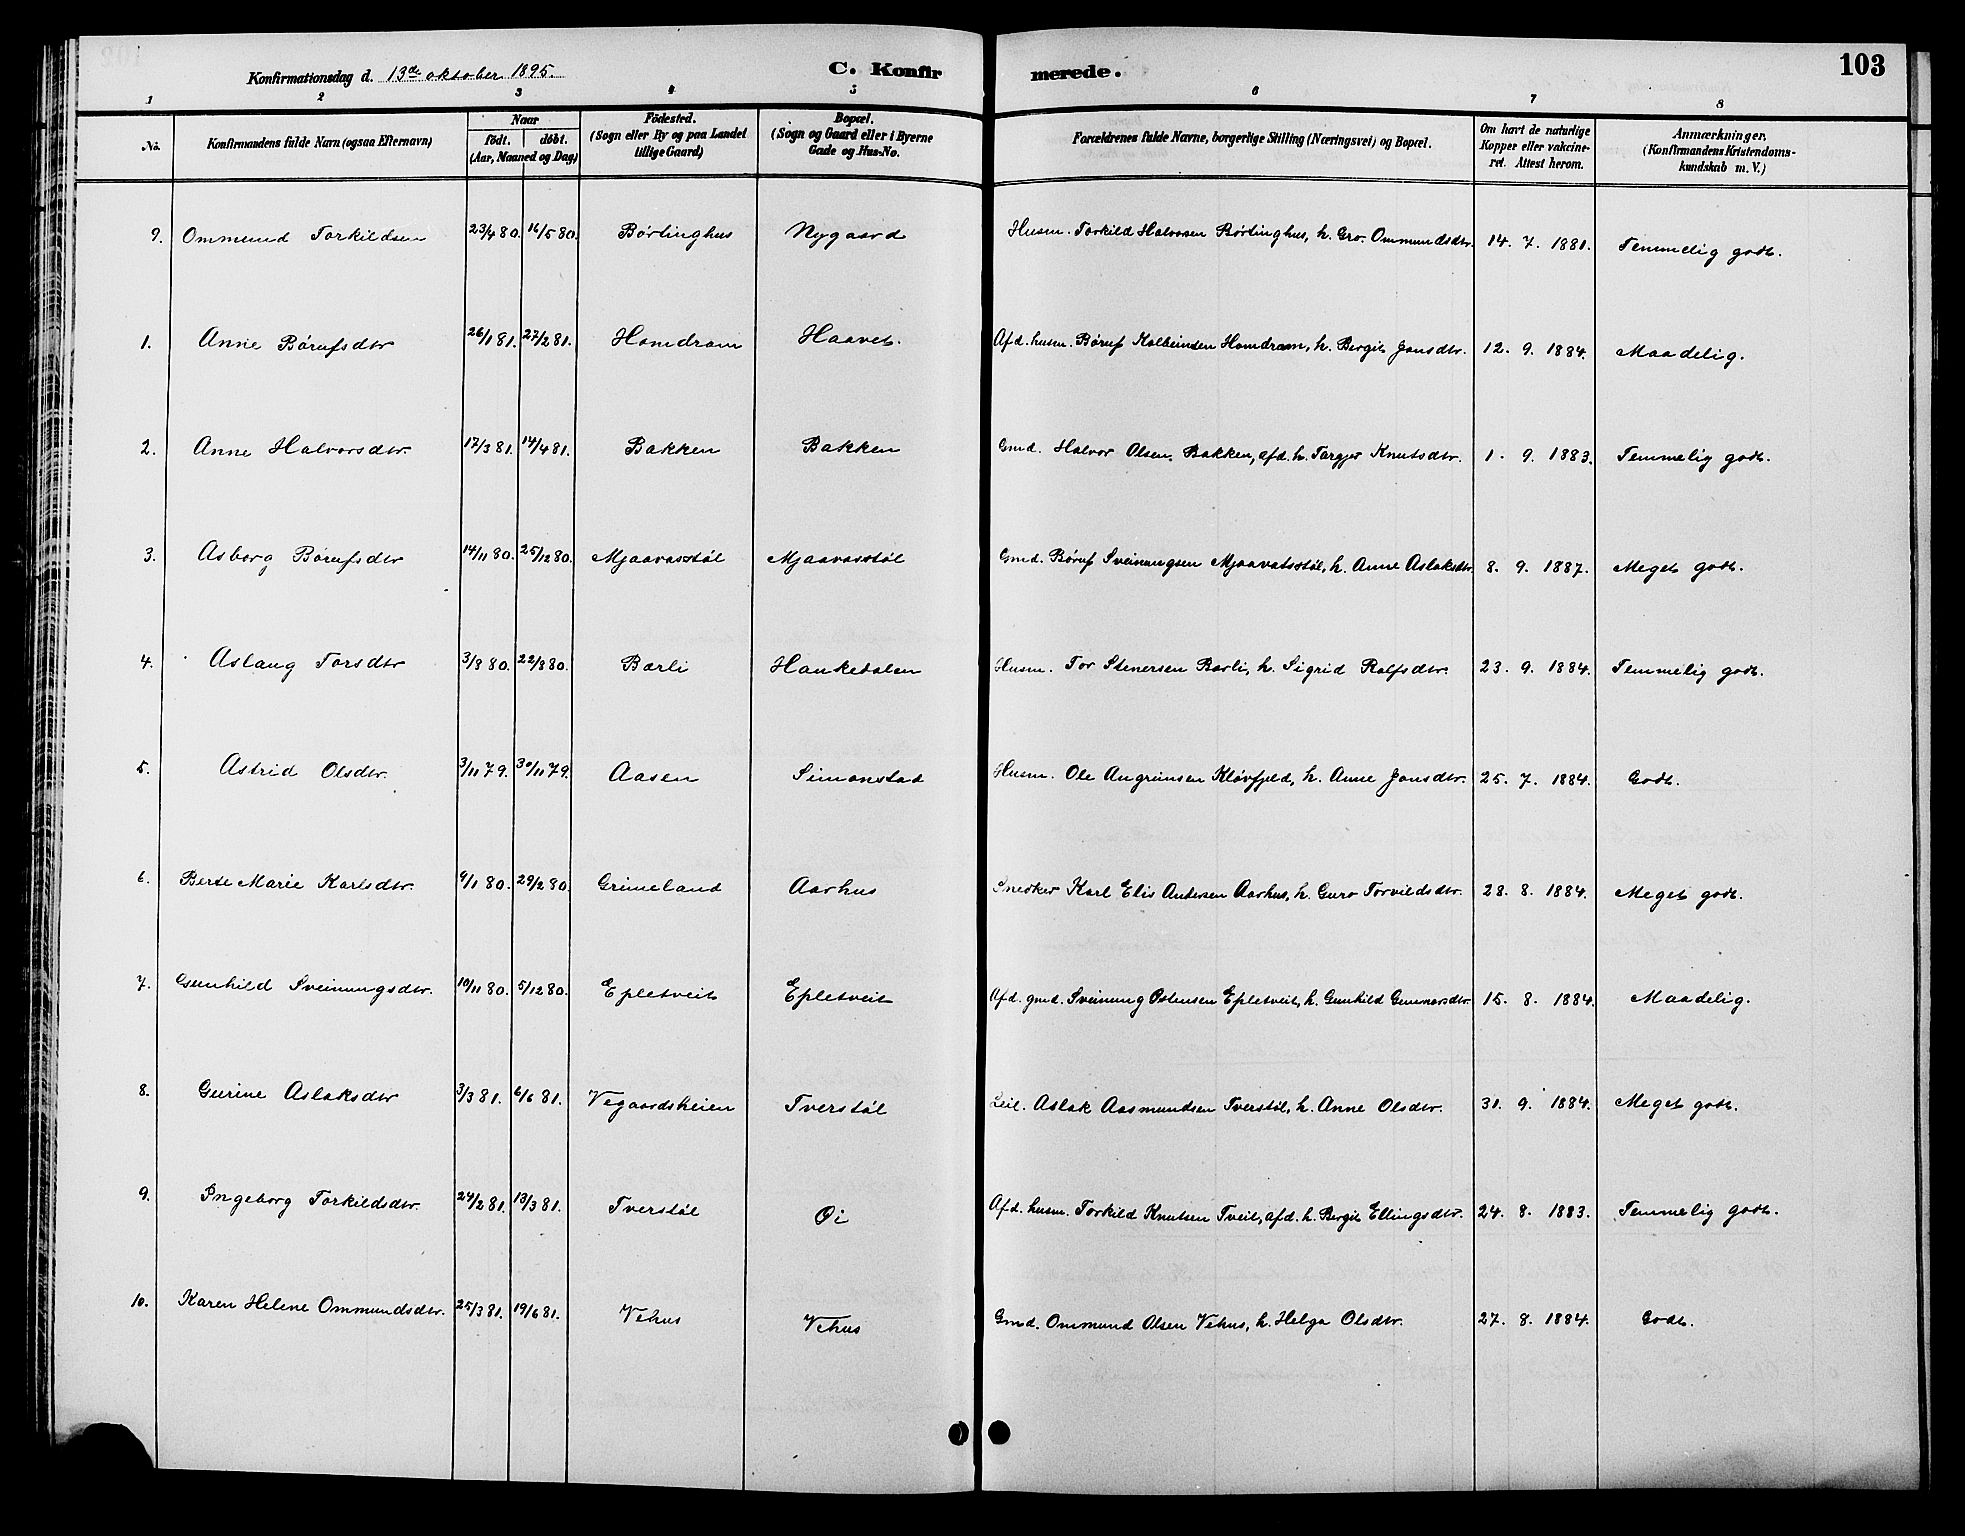 Konfirmationsdag d. 13de oktober 1895. C. Konfirmerede. 103
1 2 3 4 5 6 7 8
No. Konfirmandens fulde Navn (ogsaa Efternavn) Naar født. døbt. (Aar, Maaned og Dag) Fødested. (Sogn eller By og paa Landet tillige Gaard) Bopæl. (Sogn og Gaard eller i Byerne Gade og Hus-No. Forældrenes fulde Navne, borgerlige Stilling (Næringsvei) og Bopæl. Om havt de naturlige Kopper eller vakcineret. Attest herom. Anmærkninger. (Konfirmandens Kristendomskundskab m. V.)
9. Ommund Torkildsen 23/4 80. 16/5 80. Børtinghus Nygaard Husm. Torkild Halvorsen Børtinghus, h. Gro Ommundsdtr. 14. 7. 1881. Temmelig godt.
1. Anne Børufsdtr 26/1 81. 27/2 81. Homdrom Haavet. Afd. husm. Børuf Kolbeinsen Homdrom, h. Bergit Jonsdtr. 12. 9. 1884. Maadelig.
2. Anne Halvorsdtr. 17/3 81. 14/4 81. Bakken Bakken Gmd. Halvor Olsen Bakken, afd. h. Targjer Knutsdtr. 1. 9. 1883. Temmelig godt.
3. Asborg Børufsdtr 14/11 80. 25/12 80. Mjaavasstøl Mjaavasstøl Gmd. Børuf Sveinungsen Mjaavatsstøl, h. Anne Aslaksdtr. 8. 9. 1887. Meget godt.
4. Aslaug Torsdtr 3/8 80. 22/8 80. Barli Hanketolen Husm. Tor Stenersen Barli, h. Sigrid Rolfsdtr. 23. 9. 1884. Temmelig godt.
5. Astrid Olsdtr. 3/11 79. 30/11 79. Aasen Simonstad Husm. Ole Angrimsen Kløvfjeld, h. Anne Jonsdtr. 25. 7. 1884. Godt.
6. Berte Marie Karlsdtr. 9/1 80. 29/2 80. Grimeland Aarhus Snedker Karl Elis Andersen Aarhus, h. Guro Torvildsdtr. 28. 8. 1884. Meget godt.
7. Gunhild Sveinungsdtr. 10/11 80. 5/12 80. Epletveit Epletveit Afd. gmd. Sveinung Ostensen Epletveit, h. Gunhild Gunnarsdtr. 15. 8. 1884. Maadelig.
8. Gurine Aslaksdtr 3/3 81. 6/6 81. Vegaardsheien Tverstøl Leil. Aslak Aasmundsen Tverstøl, h. Anne Olsdtr. 31. 9. 1884. Meget godt.
9. Ingeborg Torkildsdtr. 24/2 81. 13/3 81. Tverstøl Oi Afd. husm. Torkild Knutsen Tveit, afd. h. Bergit Ellingsdtr. 24. 8. 1883. Temmelig godt.
10. Karen Helene Ommundsdtr. 25/3 81. 19/6 81. Vehus Vehus Gmd. Ommund Olsen Vehus, h. Helga Olsdtr. 27. 8. 1884. Godt.